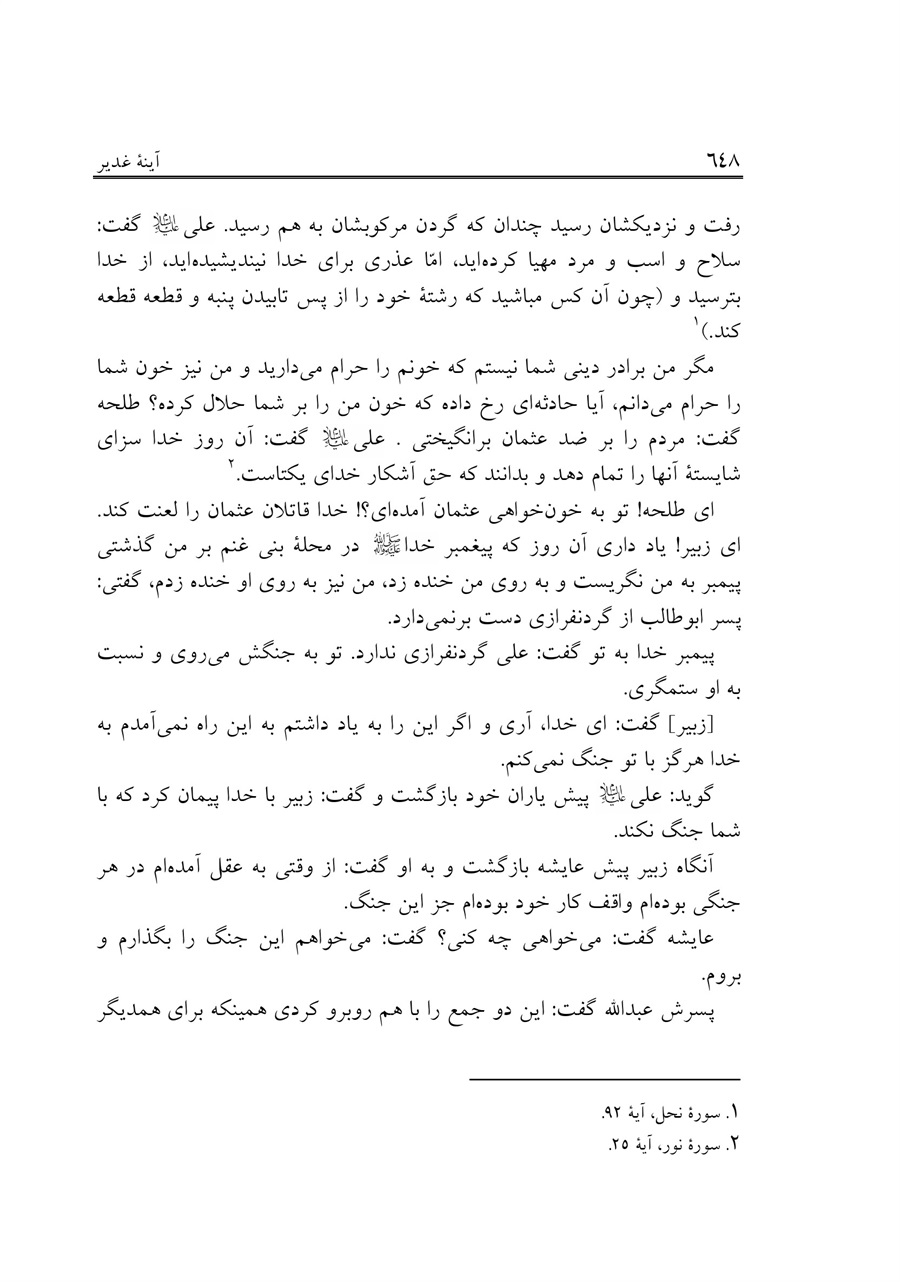 ٦٤٨ آینهٔ غدیر
رفت و نزدیکشان رسید چندان که گردن مرکوبشان به هم رسید. علی علیه‌السلام گفت:
سلاح و اسب و مرد مهیا کرده‌اید، امّا عذری برای خدا نیندیشیده‌اید، از خدا
بترسید و (چون آن کس مباشید که رشتهٔ خود را از پس تابیدن پنبه و قطعه قطعه
کند.)۱
مگر من برادر دینی شما نیستم که خونم را حرام می‌دارید و من نیز خون شما
را حرام می‌دانم، آیا حادثه‌ای رخ داده که خون من را بر شما حلال کرده؟ طلحه
گفت: مردم را بر ضد عثمان برانگیختی . علی علیه‌السلام گفت: آن روز خدا سزای
شایستهٔ آنها را تمام دهد و بدانند که حق آشکار خدای یکتاست.۲
ای طلحه! تو به خون‌خواهی عثمان آمده‌ای؟! خدا قاتلان عثمان را لعنت کند.
ای زبیر! یاد داری آن روز که پیغمبر خدا ﷺ در محلهٔ بنی غنم بر من گذشتی
پیمبر به من نگریست و به روی من خنده زد، من نیز به روی او خنده زدم، گفتی:
پسر ابوطالب از گردنفرازی دست برنمی‌دارد.
پیمبر خدا به تو گفت: علی گردنفرازی ندارد. تو به جنگش می‌روی و نسبت
به او ستمگری.
[زبیر] گفت: ای خدا، آری و اگر این را به یاد داشتم به این راه نمی‌آمدم به
خدا هرگز با تو جنگ نمی‌کنم.
گوید: علی علیه‌السلام پیش یاران خود بازگشت و گفت: زبیر با خدا پیمان کرد که با
شما جنگ نکند.
آنگاه زبیر پیش عایشه بازگشت و به او گفت: از وقتی به عقل آمده‌ام در هر
جنگی بوده‌ام واقف کار خود بوده‌ام جز این جنگ.
عایشه گفت: می‌خواهی چه کنی؟ گفت: می‌خواهم این جنگ را بگذارم و
بروم.
پسرش عبدالله گفت: این دو جمع را با هم روبرو کردی همینکه برای همدیگر
۱. سورهٔ نحل، آیهٔ ۹۲.
۲. سورهٔ نور، آیهٔ ۲۵.